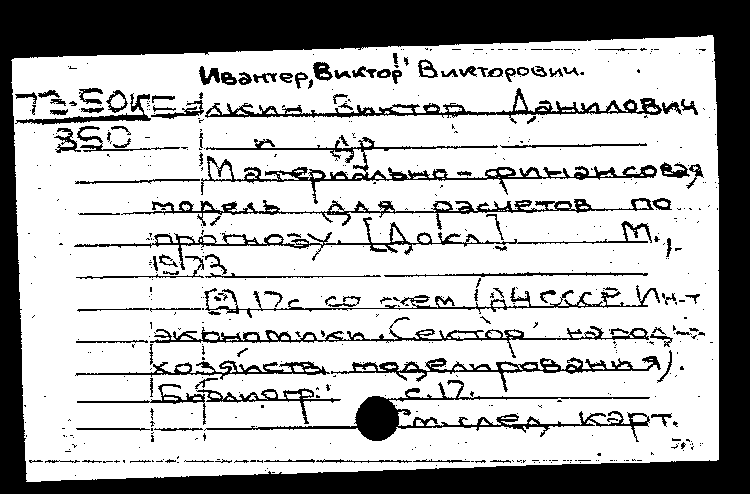 Ивантер, Виктор Викторович.
73-50К Белкин, Виктор Данилович
850 и др.
Материально-финансовая
модель для расчетов по
прогнозу. [Докл.]. М.,
1973.
[2], 17 с. со схем (АН СССР. Ин-т
экономики. Сектор народ.-
хозяйств. моделирования).
Библиогр.: с. 17.
См. след. карт.